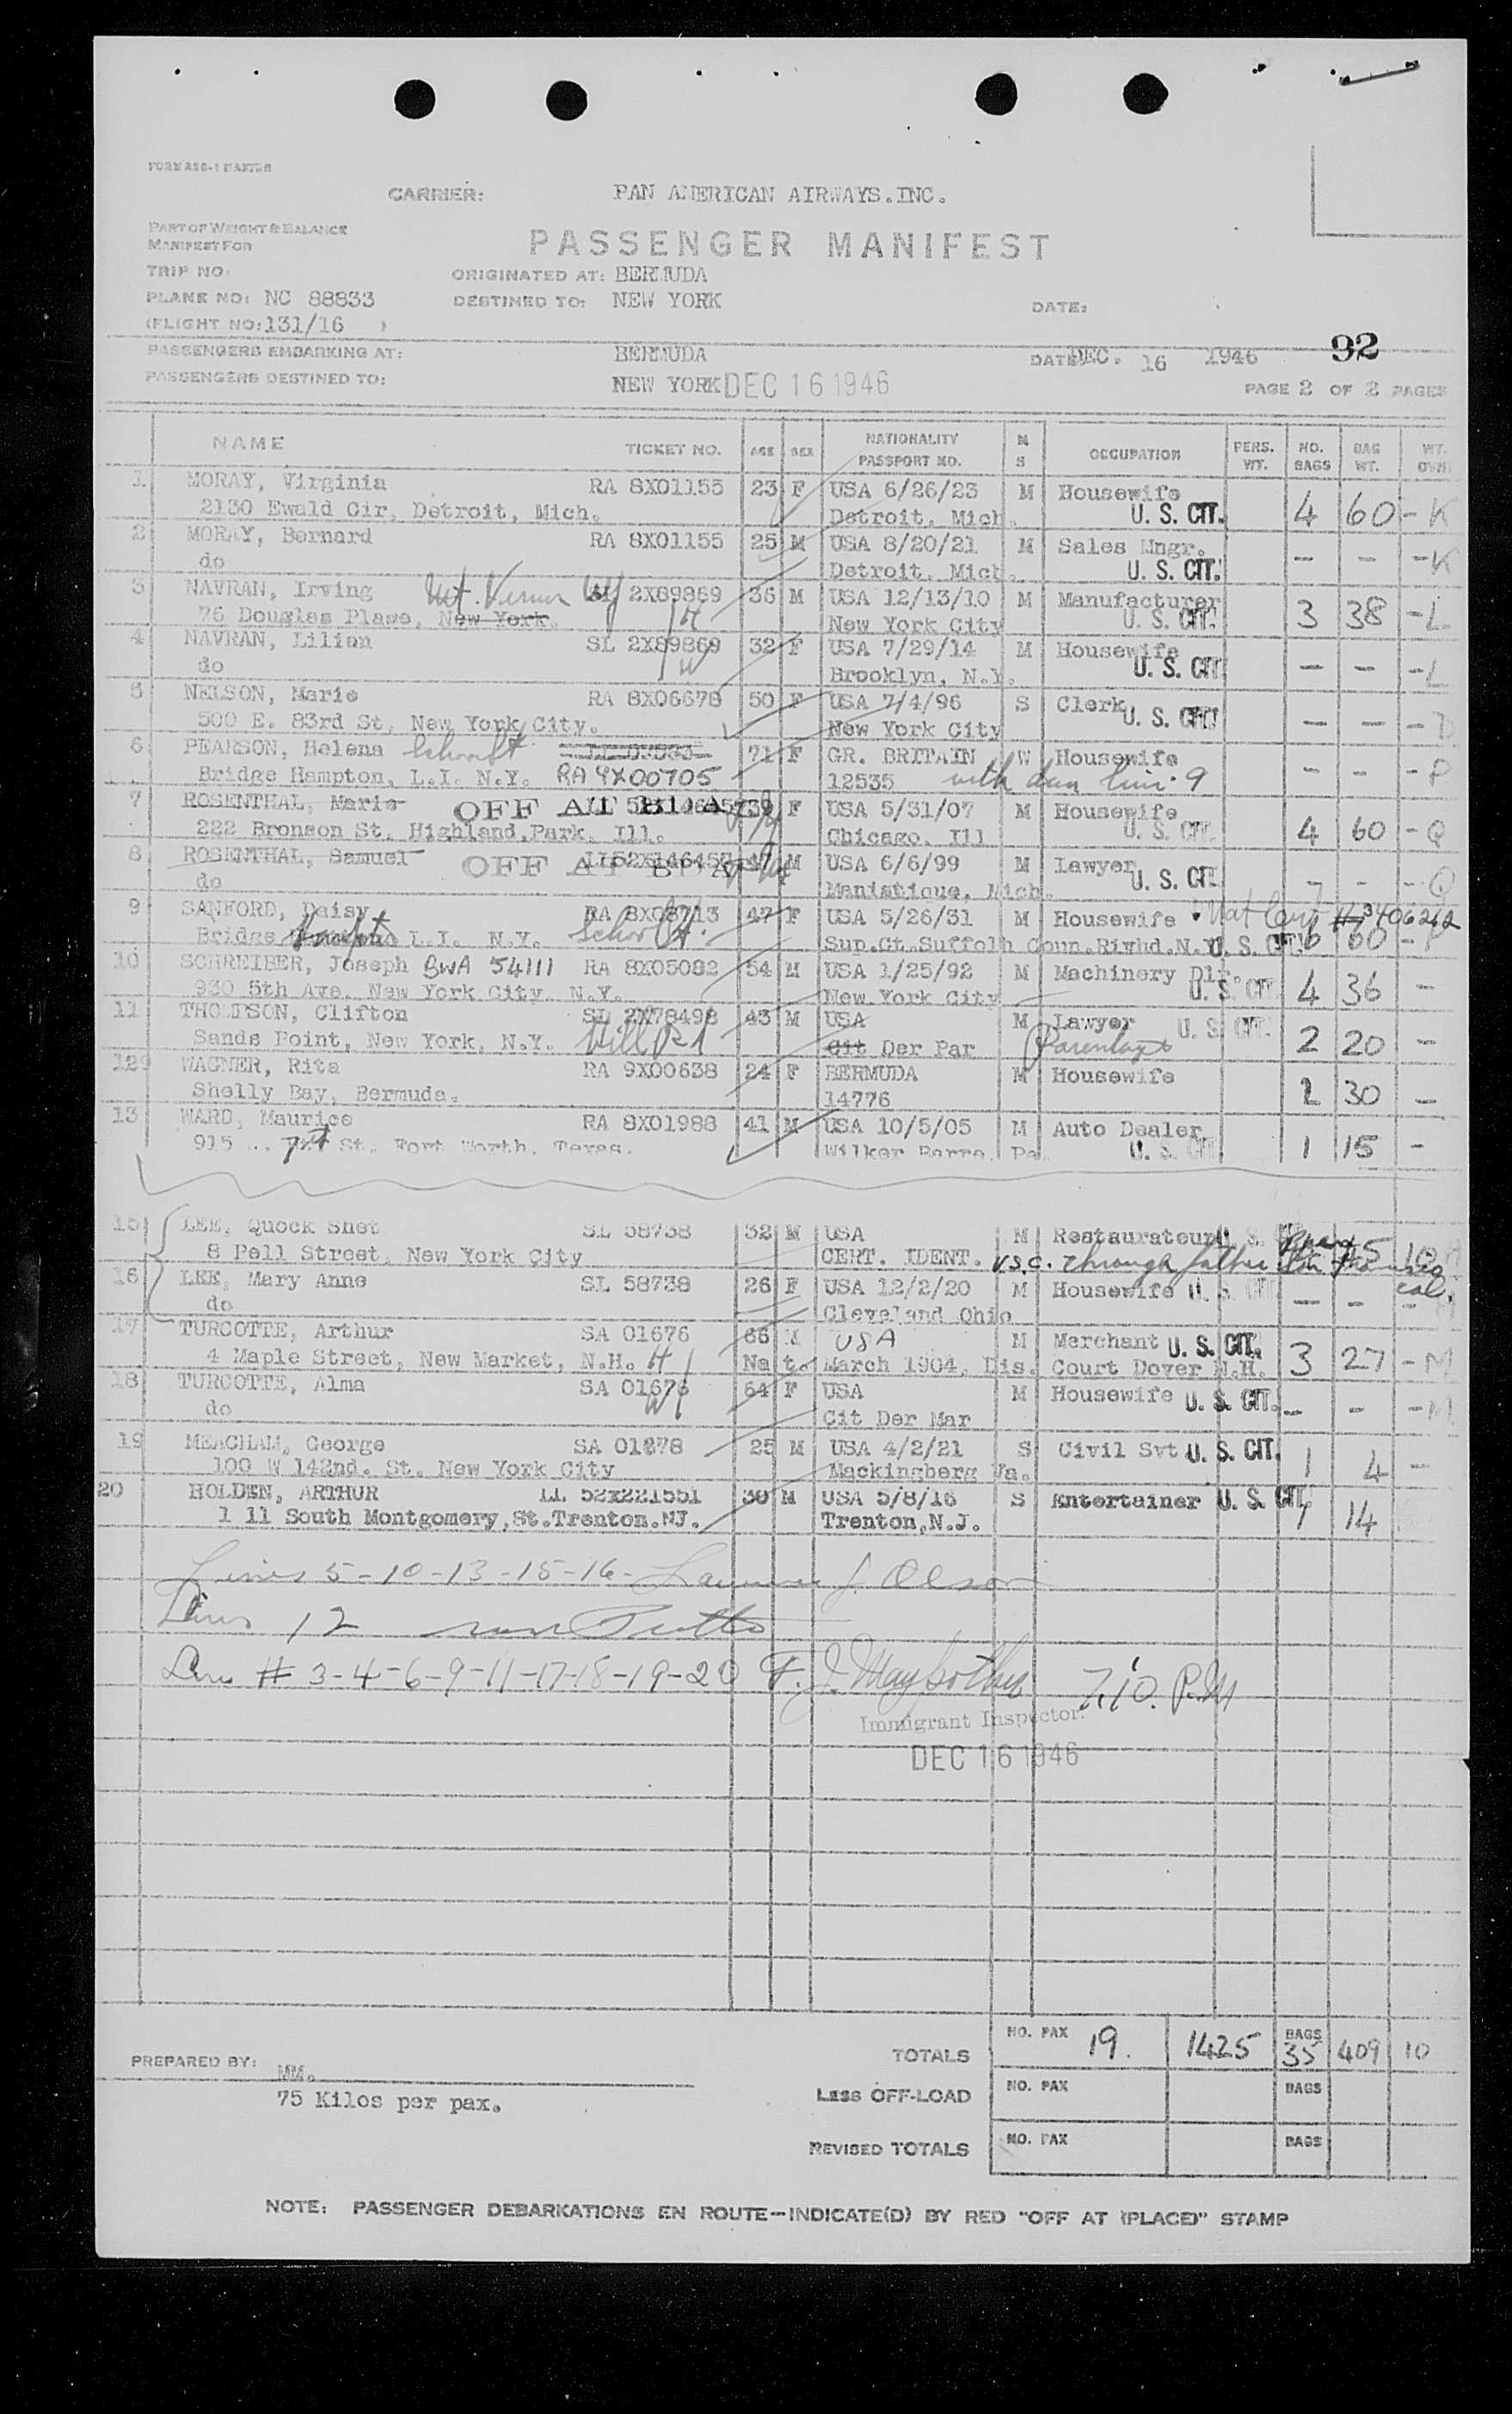 FORM ASG-1 MASTER
CARRIER: PAN AMERICAN AIRWAYS.INC.
PART OF WEIGHT & BALANCE
MANIFEST FOR
PASSENGER MANIFEST
TRIP NO:
ORIGINATED AT: BERMUDA
PLANE NO: NC 88833 DESTINED TO: NEW YORK DATE:
(FLIGHT NO: 131/16 )
92
PASSENGERS EMBARKING AT: BERMUDA DATE DEC. 16 1946
PASSENGERS DESTINED TO: NEW YORK DEC 16 1946 PAGE 2 OF 2 PAGES
NAME TICKET NO. AGE SEX NATIONALITY PASSPORT NO. M S OCCUPATION PERS. WT. NO. BAGS BAG WT. WT. OVR
1 MORAY, Virginia RA 8X01155 23 F USA 6/26/23 M Housewife
2130 Ewald Cir, Detroit, Mich. Detroit, Mich. U. S. CIT. 4 60 - K
2 MORAY, Bernard RA 8X01155 25 M USA 8/20/21 M Sales Mngr.
do Detroit, Mich. U. S. CIT. - - - K
3 NAVRAN, Irving Mt. Vernon NY SL 2X89869 36 M USA 12/13/10 M Manufacturer
76 Douglas Place, New York. H New York City U. S. CIT. 3 38 - L
4 NAVRAN, Lilian SL 2X89869 32 F USA 7/29/14 M Housewife
do W Brooklyn, N.Y. U. S. CIT - - - L
5 NELSON, Marie RA 8X06678 50 F USA 7/4/96 S Clerk
500 E. 83rd St, New York City. New York City U. S. CIT - - - D
6 PEARSON, Helena 71 F GR. BRITAIN W Housewife
Bridge Hampton, L.I. N.Y. RA 9X00705 12535 with dau line 9 - - - P
7 ROSENTHAL, Marie OFF AT BDA 39 F USA 5/31/07 M Housewife
222 Bronson St, Highland.Park, Ill. Chicago, Ill U. S. CIT. 4 60 - Q
8 ROSENTHAL, Samuel OFF AT BDA 47 M USA 6/6/99 M Lawyer
do Manistique, Mich. U. S. CIT - - - Q
9 SANFORD, Daisy RA 8X08713 47 F USA 5/26/31 M Housewife Nat Cert # 3406242
Bridge L.I. N.Y. Sup.Ct.Suffolh Coun.Rivhd.N.Y U. S. CIT 6 60 - P
10 SCHREIBER, Joseph BWA 54111 RA 8X05082 54 M USA 1/25/92 M Machinery Dlr.
930 5th Ave, New York City N.Y. New York City U. S. CIT. 4 36 -
11 THOMPSON, Clifton SL 2X78498 43 M USA M Lawyer U. S. CIT.
Sands Point, New York, N.Y. Hill Rd Cit Der Par Parentage 2 20 -
12 WAGNER, Rita RA 9X00638 24 F BERMUDA M Housewife
Shelly Bay, Bermuda. 14776 2 30 -
13 WARD, Maurice RA 8X01988 41 M USA 10/5/05 M Auto Dealer
915 7th St. Fort Worth, Texas. Wilker Barre, Pa. U. S. CIT 1 15 -
15 LEE, Quock Shet SL 58738 32 M USA M Restaurateur U. S.
8 Pell Street, New York City CERT. IDENT. U.S.C. through father 10
16 LEE, Mary Anne SL 58738 26 F USA 12/2/20 M Housewife U. S. CIT cal.
do Cleveland Ohio - - -
17 TURCOTTE, Arthur SA 01676 66 M USA M Merchant U. S. CIT.
4 Maple Street, New Market, N.H. H Nat. March 1904, Dis. Court Dover N.H. 3 27 - M
18 TURCOTTE, Alma SA 01676 64 F USA M Housewife U. S. CIT.
do W Cit Der Mar - - - M
19 MEACHAM, George SA 01678 25 M USA 4/2/21 S Civil Svt U. S. CIT.
100 W 142nd. St. New York City Mackingberg Va. 1 4 -
20 HOLDEN, ARTHUR LL 52X221551 30 M USA 5/8/16 S Entertainer U. S. CIT,
1 11 South Montgomery,St.Trenton.NJ. Trenton,N.J. 1 14
Lines 5-10-13-15-16- J Olson
Line 12
Line # 3-4-6-9-11-17-18-19-20 F. J. 7:10. P.M
Immigrant Inspector.
DEC 16 1946
TOTALS NO. PAX 19. 1425 BAGS 35 409 10
PREPARED BY: MM.
Less OFF-LOAD NO. PAX BAGS
75 Kilos per pax.
REVISED TOTALS NO. PAX BAGS
NOTE: PASSENGER DEBARKATIONS EN ROUTE—INDICATE(D) BY RED "OFF AT (PLACE)" STAMP